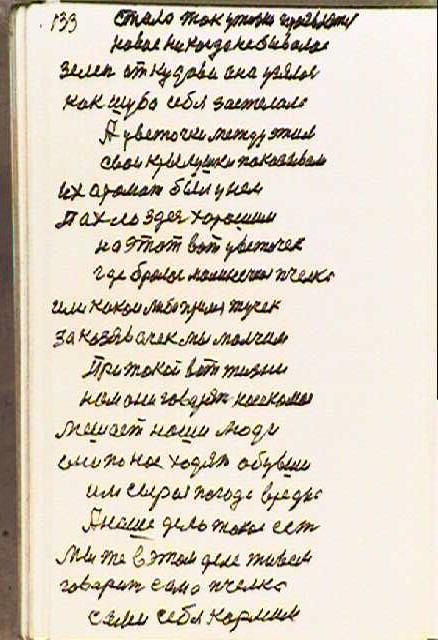 133 стало так уютно
новое никогда не бывалое
Зелен откуда она взялся
как шуба себя застелала
А цветочки между этим
свои крылушки показывали
их аромат был у нем
Пахло здея хорошим
на этот вот цветочек
где бралос пчелка
или какои либо прим жучек
за козявачек мы молчим
При такой вот жизни
нам они говорят насекомое
мешает наши люди
они по нос ходят обувши
или сырая погода вредно
А наше дело такое ест
Мы же в этом деле живем
говорит само пчелка
сами себя кормим